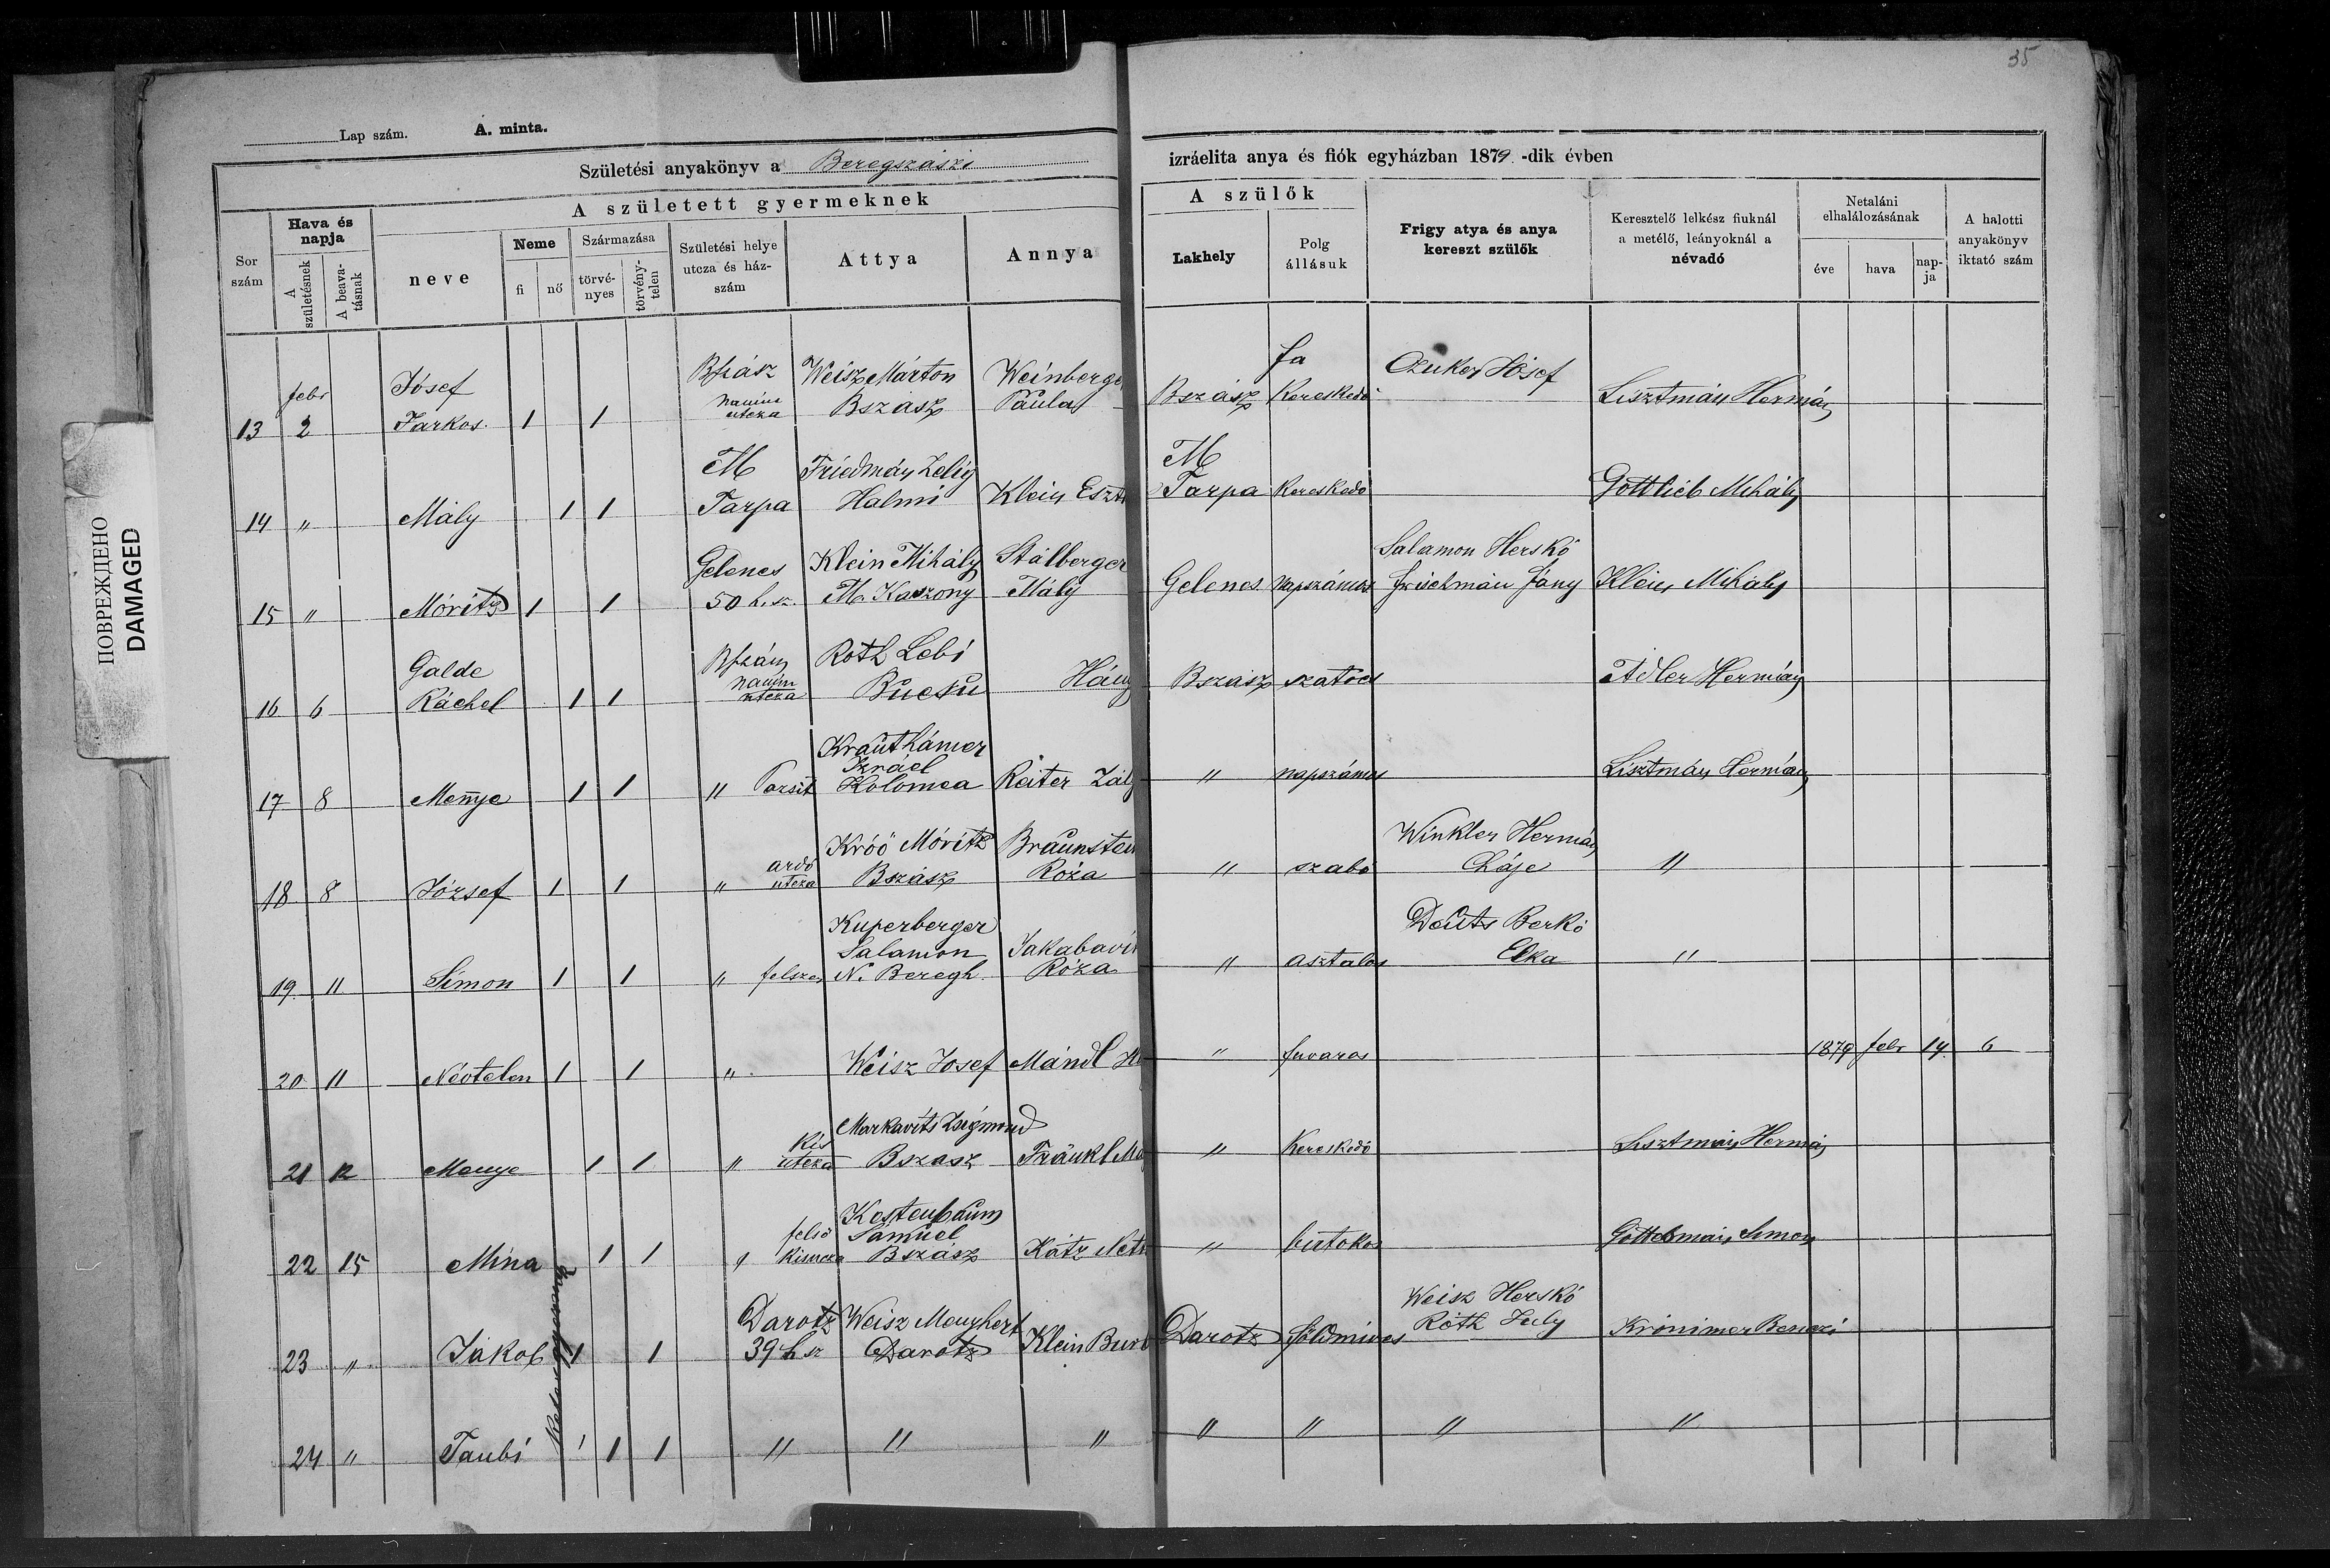 35
Lap szám. A. minta.
Születési anyakönyv a Beregszászi izráelita anya és fiók egyházban 1879 -dik évben
A született gyermeknek
A szülők
Sor szám
Hava és napja
A születésnek
A beavatásnak
neve
Neme
fi
nő
Származása
törvényes
törvénytelen
Születési helye utcza és házszám
Attya
Annya
Lakhely
Polg állásuk
Frigy atya és anya kereszt szülők
Keresztelő lelkész fiuknál a metélő, leányoknál a névadó
Netaláni elhalálozásának
éve
hava
napja
A halotti anyakönyv iktató szám
13 febr 2 Jósef Farkas 1 1 Bszász utcza Weisz Márton Bszász Weinberge Paula Bszász fa Kereskedő Czuker Jósef Lisztmán Hermán
14 " Mály 1 1 M Tarpa Friedmán Zelig Halmi Klein Eszt M Tarpa Kereskedő Gottlieb Mihály
15 " Móritz 1 1 Gelenes 50 h. sz. Klein Mihály M. Kaszony Stálberger Mály Gelenes napszámos Salamon Herskó Frischmán Fány Klein Mihály
16 6 Galde Ráchel 1 1 Bszász utcza Roth Lebi Bucsu Hány Bszász szatócs Adler Hermán
17 8 Mennye 1 1 " Krautkámer Izráel Kolomea Reiter Zály " napszámos Lisztmán Hermán
18 8 József 1 1 " ardó utcza Króó Móritz Bszász Braunstein Róza " szabó Winkler Hermán Cháje "
19 11 Simon 1 1 " felszer Kuperberger Salamon N. Beregh Jakabavit Róza " asztalos Deuts Berkó Elka "
20 11 Névtelen 1 1 " Weisz Josef Mándl " fuvaros 1879 febr 14 6
21 12 Menye 1 1 " Kis utcza Markavits Zsigmond Bszász Fränkl Ma " Kereskedő Lisztmán Hermán
22 15 Mina 1 1 " felső Kestenbaum Sámuel Bszász Kátz Net " butokos Gottesman Simon
23 " Jakob 1 1 Darotz 39 h sz Weisz Menyhert Darotz Klein Darotz földmives Weisz Herskó Róth July
24 " Taubi 1 1 1 " " " " " " "
ПОВРЕЖДЕНО
DAMAGED